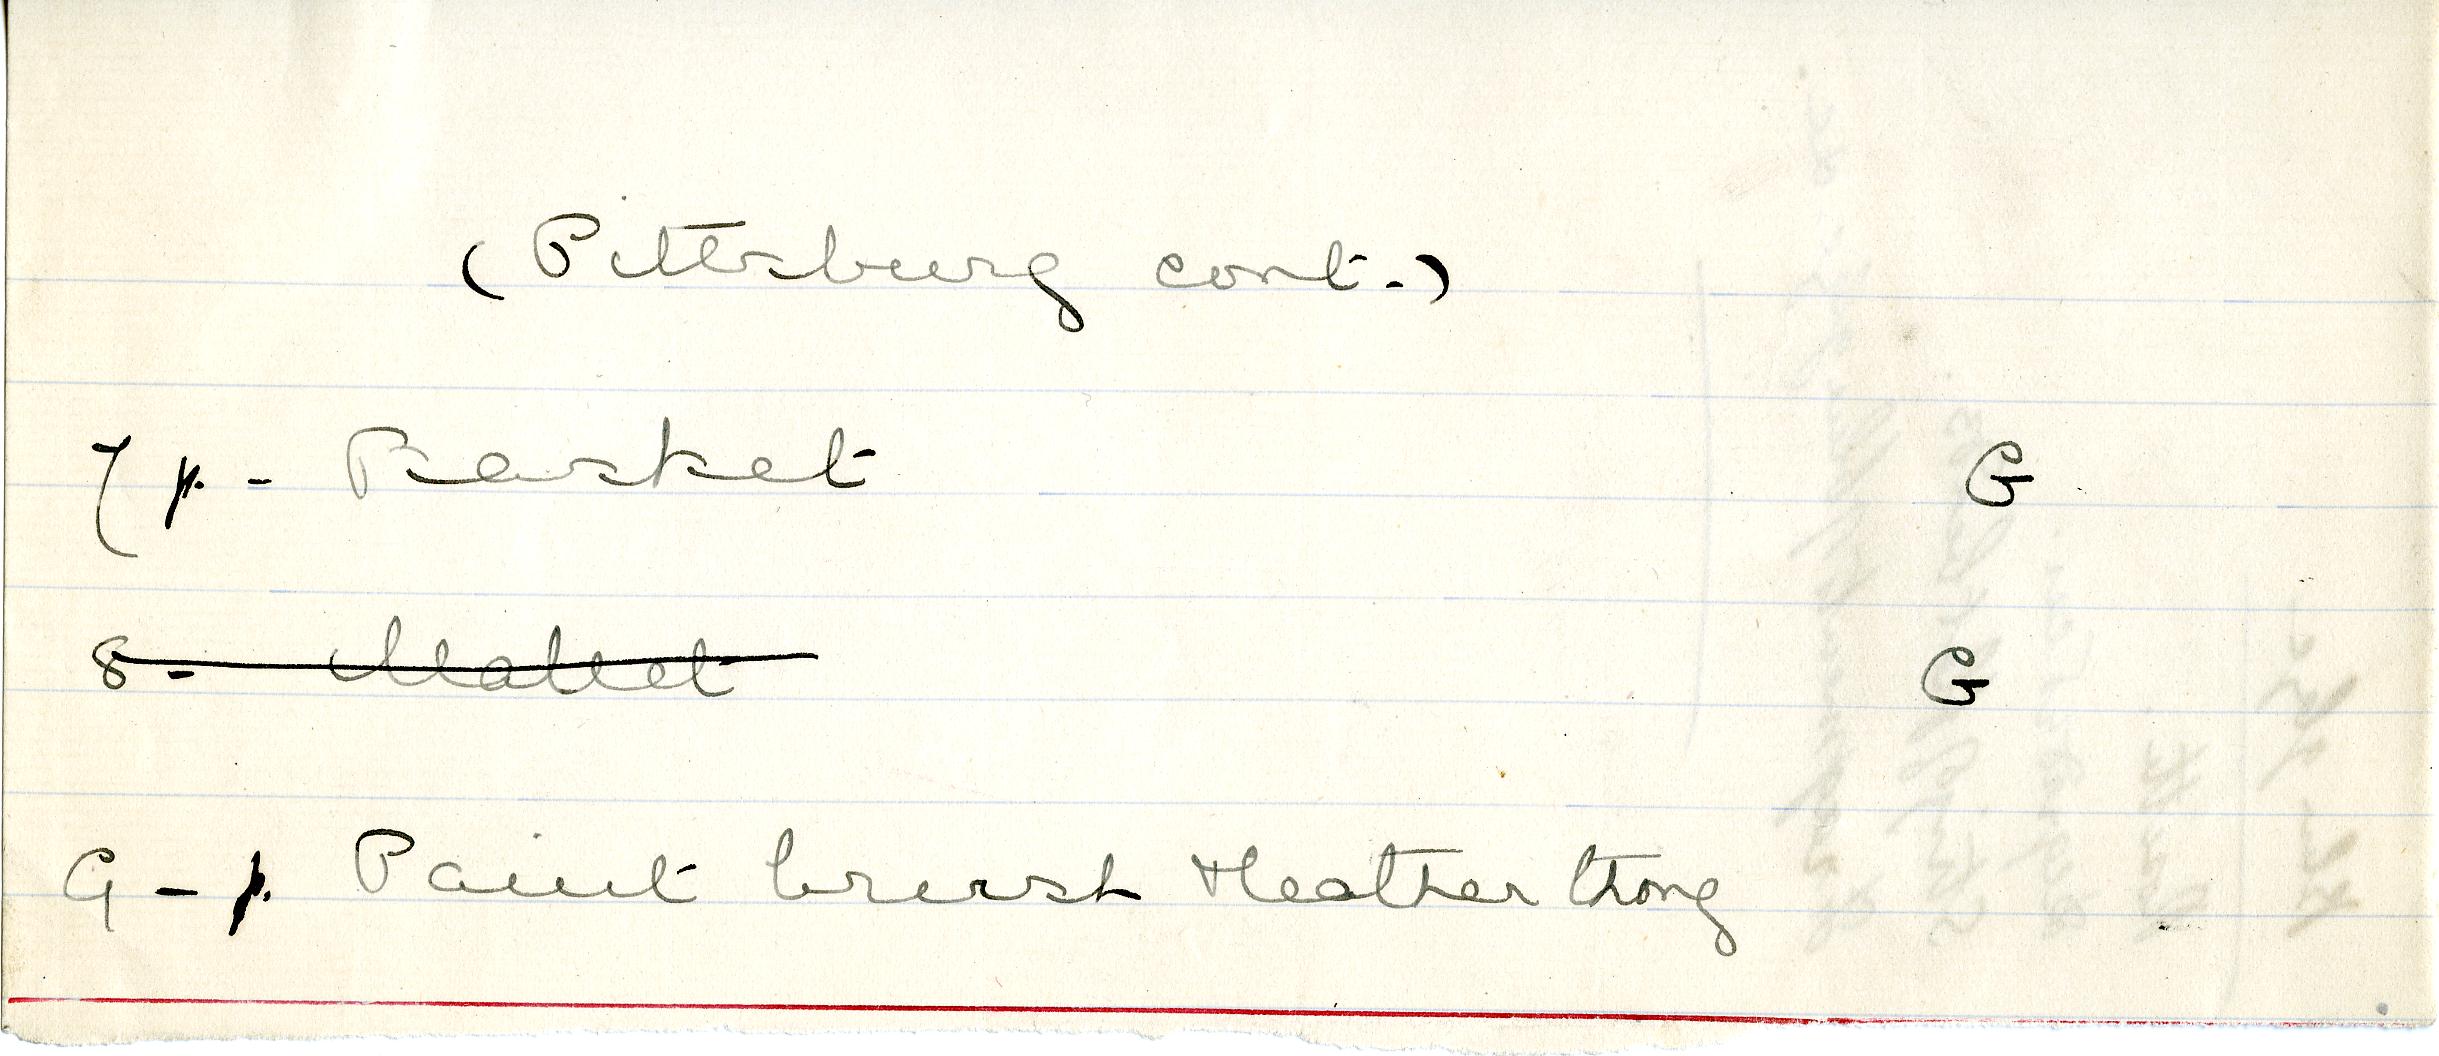 (Pittsburg cont.)
7 p. - Basket G
8 - Mallet G
9 - p. Paint brush & leather thong